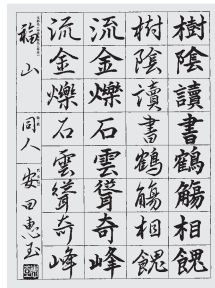 樹陰讀書鶴觴相餽
樹陰讀書鶴觴相餽
流金爍石雲聳奇峰
流金爍石雲聳奇峰
福山 同人 安田惠玉